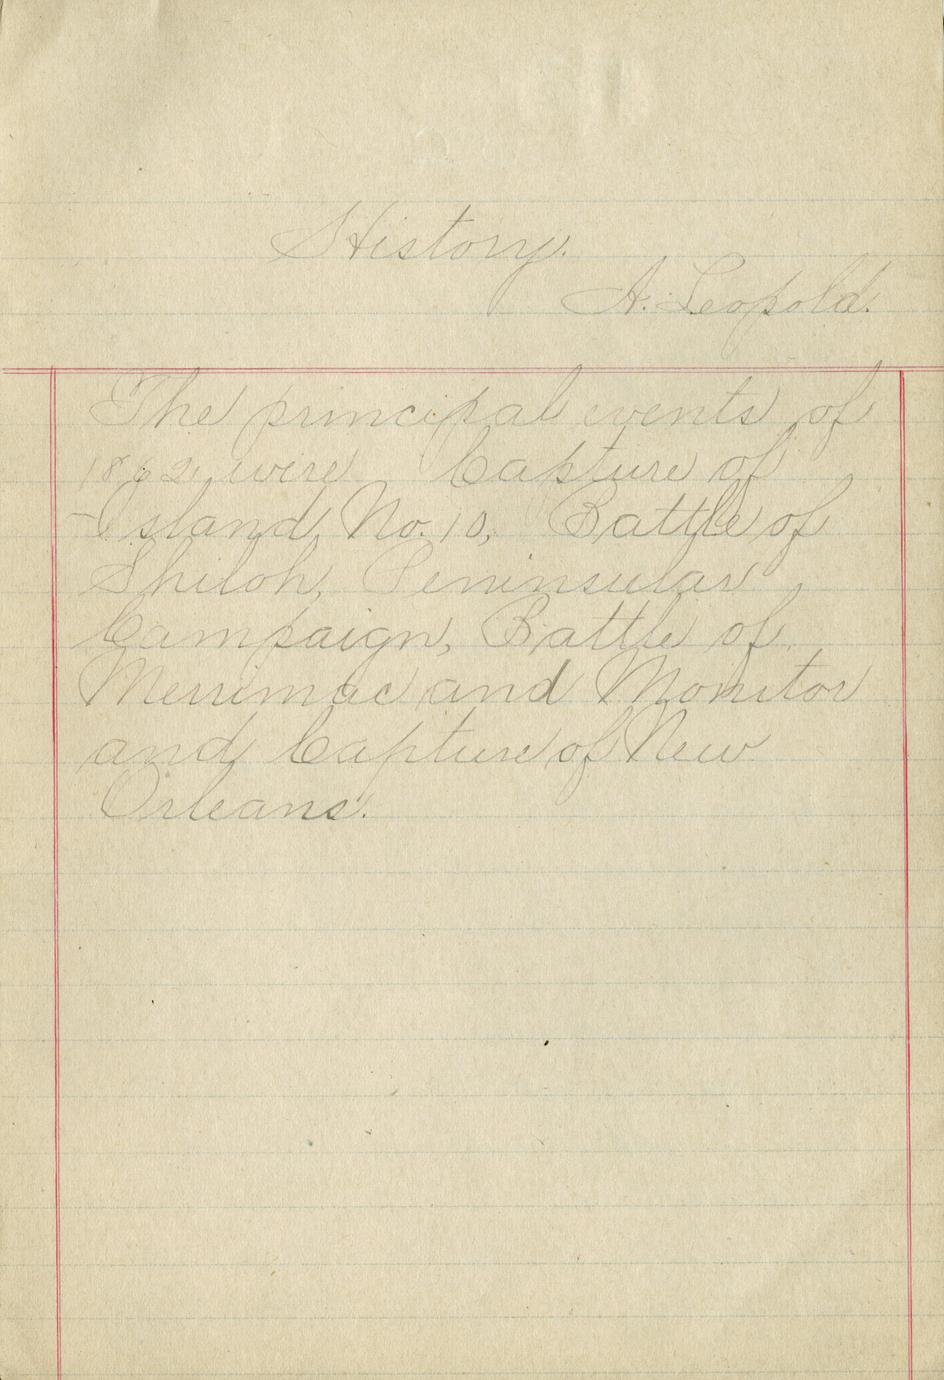 History.
A. Leopold.
The principal events of
1862 were Capture of
Island No. 10, Battle of
Shiloh, Peninsular
Campaign, Battle of
Merrimac and Monitor
and Capture of New
Orleans.